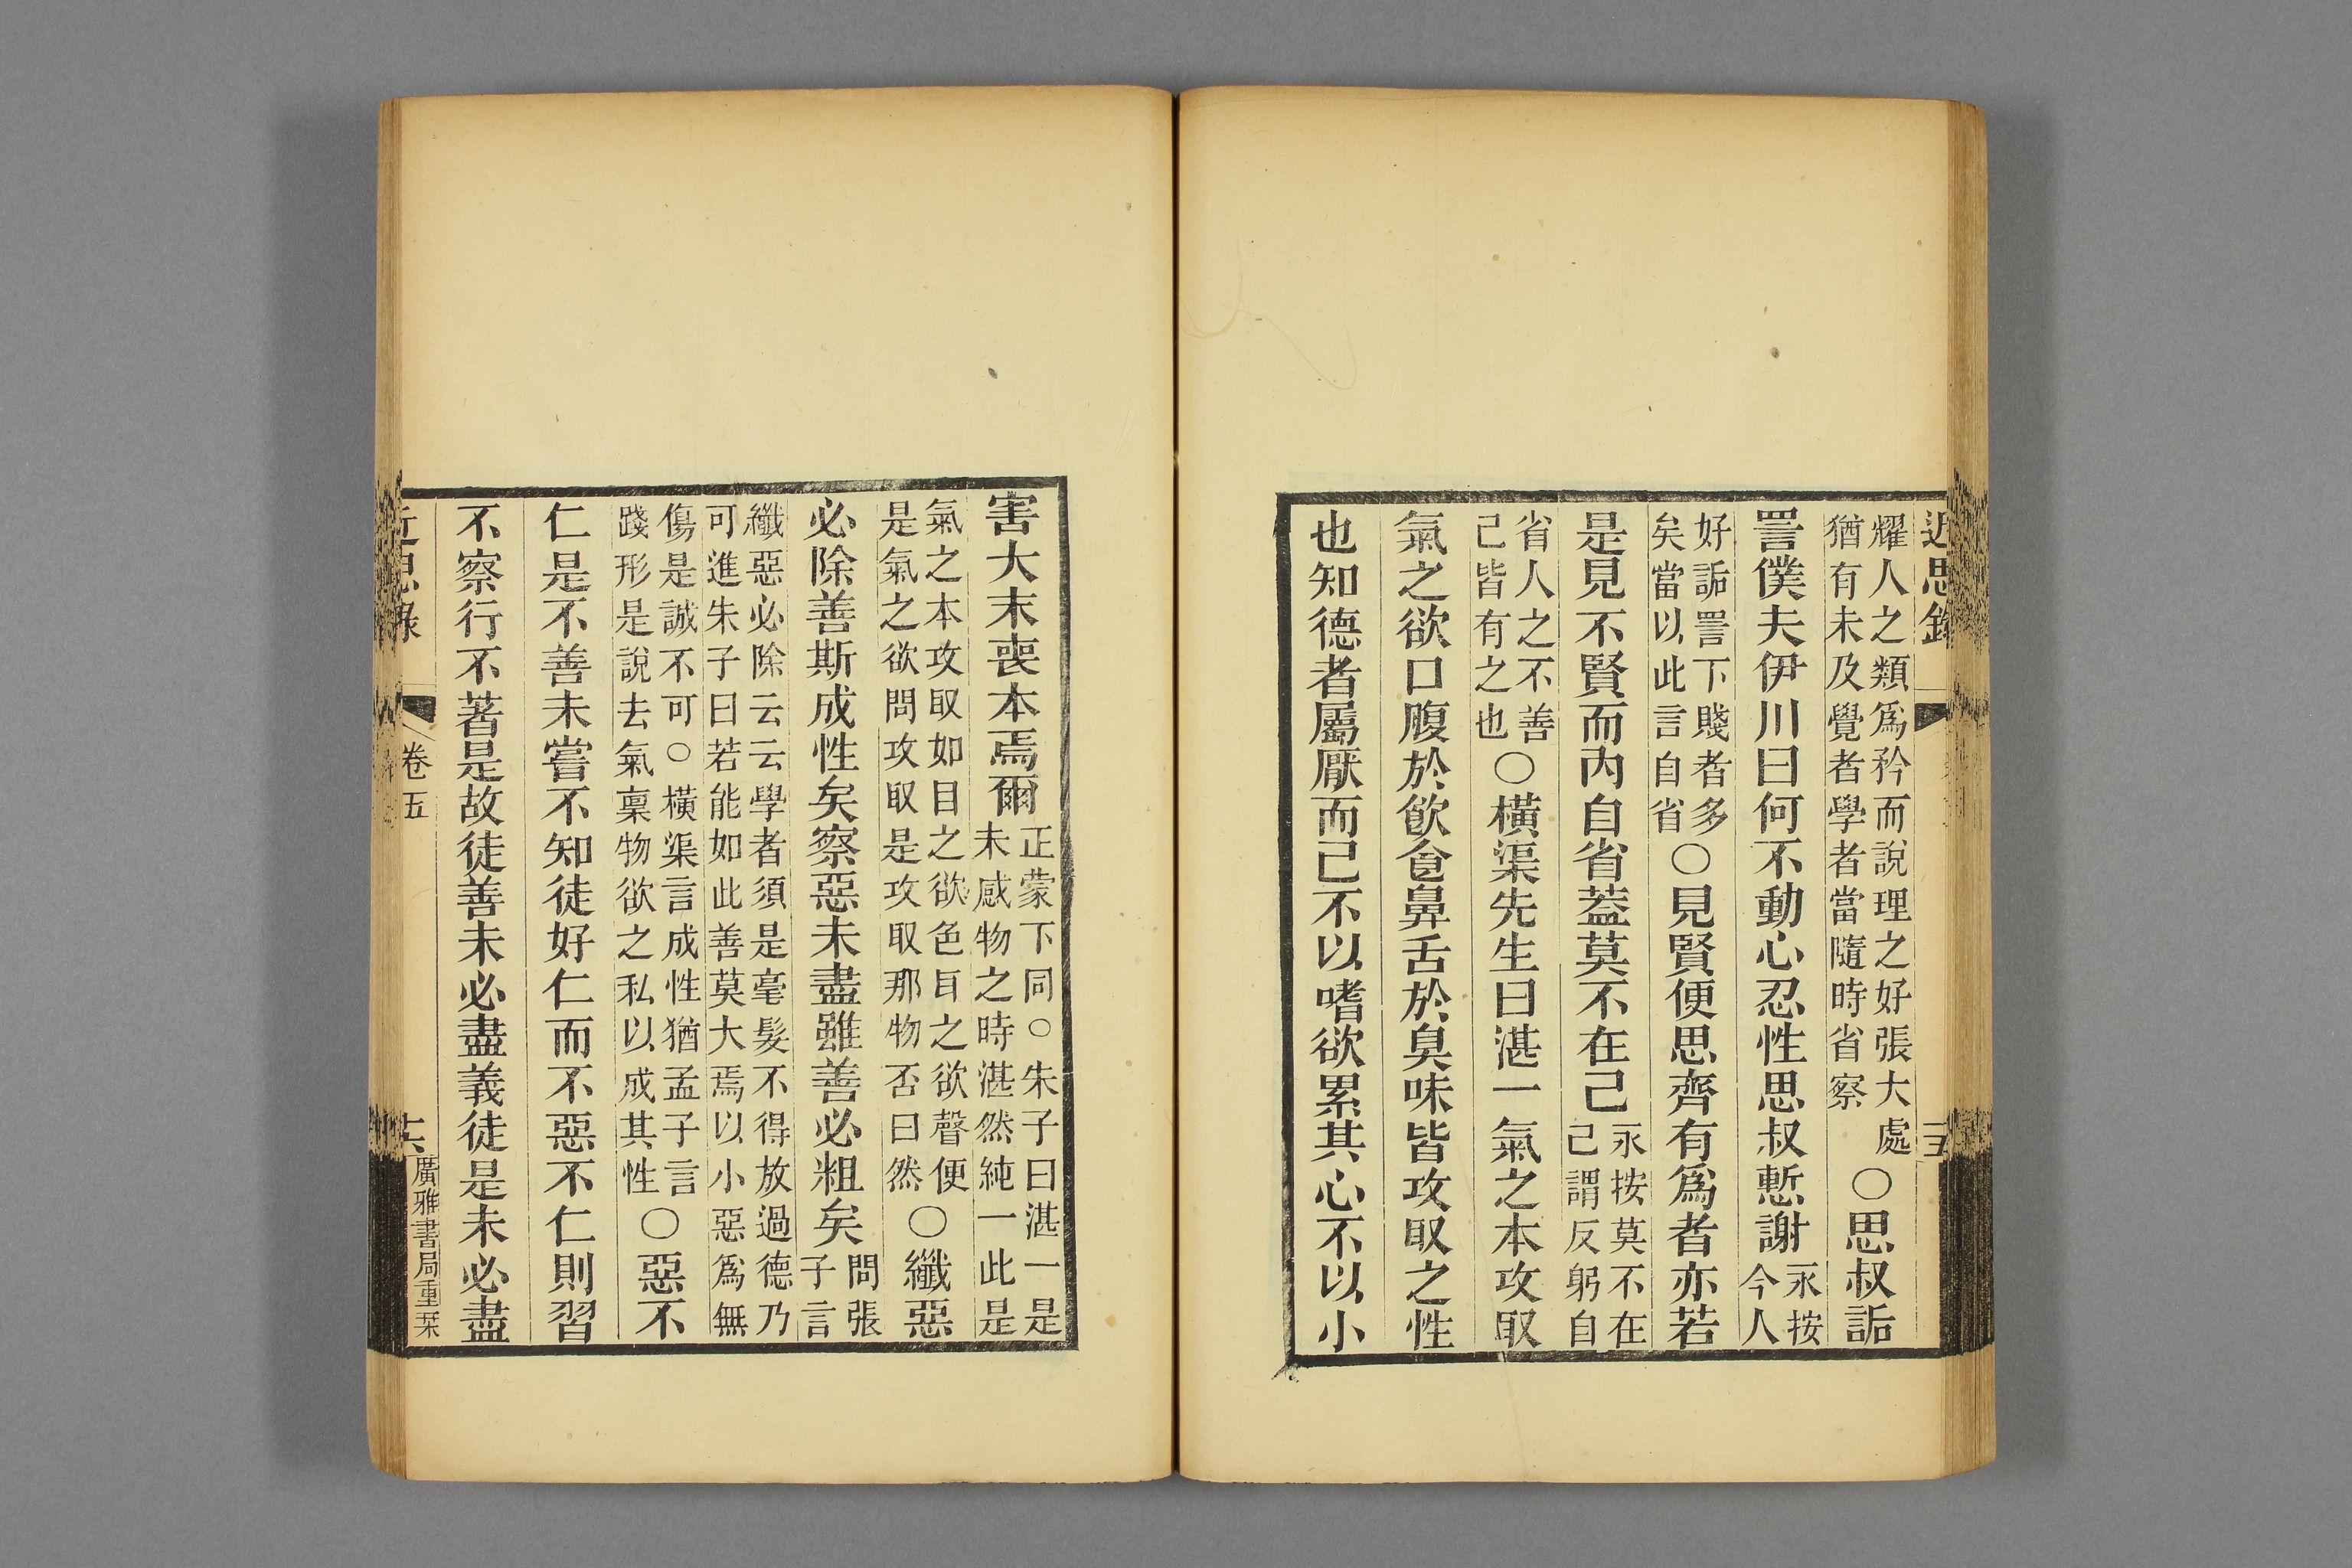 近思錄
耀人之類爲矜而說理之好張大處
猶有未及覺者學者當隨時省察
○思叔詬
詈僕夫伊川曰何不動心忍性思叔慙謝
永按
今人
好詬詈下賤者多
矣當以此言自省
○見賢便思齊有爲者亦若
是見不賢而內自省葢莫不在己
永按莫不在
己謂反躬自
省人之不善
己皆有之也
○橫渠先生曰湛一氣之本攻取
氣之欲口腹於飮食鼻舌於臭味皆攻取之性
也知德者屬厭而已不以嗜欲累其心不以小
害大末喪本焉爾
正蒙下同○朱子曰湛一是
未感物之時湛然純一此是
氣之本攻取如目之欲色耳之欲聲便
是氣之欲問攻取是攻取那物否曰然
○纖惡
必除善斯成性矣察惡未盡雖善必粗矣
問張
子言
纖惡必除云云學者須是毫髮不得放過德乃
可進朱子曰若能如此善莫大焉以小惡爲無
傷是誠不可○橫渠言成性猶孟子言
踐形是說去氣稟物欲之私以成其性
○惡不
仁是不善未嘗不知徒好仁而不惡不仁則習
不察行不著是故徒善未必盡義徒是未必盡
近思錄
卷五
十六
廣雅書局重栞